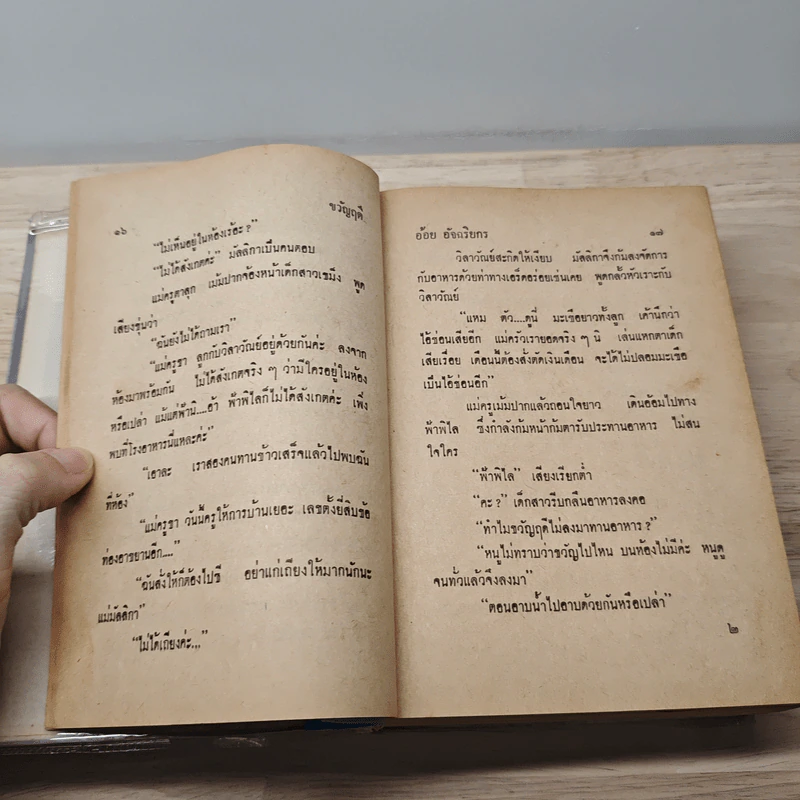 ๑๖
ขวัญฤดี
"ไม่เห็นอยู่ในห้องเรอะ ?"
"ไม่ได้สังเกตค่ะ" มัลลิกาเป็นคนตอบ
แม่ครูตาลุก เม้มปากจ้องหน้าเด็กสาวเขม็ง พูด
เสียงขุ่นว่า
"ฉันยังไม่ได้ถามเรา"
"แม่ครูขา ลูกกับวิลาวัณย์อยู่ด้วยกันค่ะ ลงจาก
ห้องมาพร้อมกัน ไม่ได้สังเกตจริง ๆ ว่ามีใครอยู่ในห้อง
หรือเปล่า แม้แต่ฟ้านี่....อ้า ฟ้าพิไลก็ไม่ได้สังเกตค่ะ เพิ่ง
พบที่โรงอาหารนี่แหละค่ะ"
"เอาละ เราสองคนทานข้าวเสร็จแล้วไปพบฉัน
ที่ห้อง"
"แม่ครูขา วันนี้ครูให้การบ้านเยอะ เลขตั้งยี่สิบข้อ
ท่องอาขยานอีก...."
"ฉันสั่งให้ก็ต้องไปซี อย่าแก่เถียงให้มากนักนะ
แม่มัลลิกา"
"ไม่ได้เถียงค่ะ..."
อ้อย อัจฉริยกร
๑๗
วิลาวัณย์สะกิดให้เงียบ มัลลิกาจึงก้มลงจัดการ
กับอาหารด้วยท่าทางเอร็ดอร่อยเช่นเคย พูดกลั้วหัวเราะกับ
วิลาวัณย์
"แหม ตัว....ดูนี่ มะเขือยาวทั้งลูก เค้านึกว่า
ไอ้ช่อนเสียอีก แม่ครัวเรายอดจริง ๆ นิ เล่นแหกตาเด็ก
เสียเรื่อย เดือนนี้ต้องสั่งตัดเงินเดือน จะได้ไม่ปลอมมะเขือ
เป็นไอ้ช่อนอีก"
แม่ครูเม้มปากแล้วถอนใจยาว เดินอ้อมไปทาง
ฟ้าพิไล ซึ่งกำลังก้มหน้าก้มตารับประทานอาหาร ไม่สน
ใจใคร
"ฟ้าพิไล" เสียงเรียกต่ำ
"คะ ?" เด็กสาวรีบกลืนอาหารลงคอ
"ทำไมขวัญฤดีไม่ลงมาทานอาหาร ?"
"หนูไม่ทราบว่าขวัญไปไหน บนห้องไม่มีค่ะ หนูดู
จนทั่วแล้วจึงลงมา"
"ตอนอาบน้ำไปอาบด้วยกันหรือเปล่า"
๒